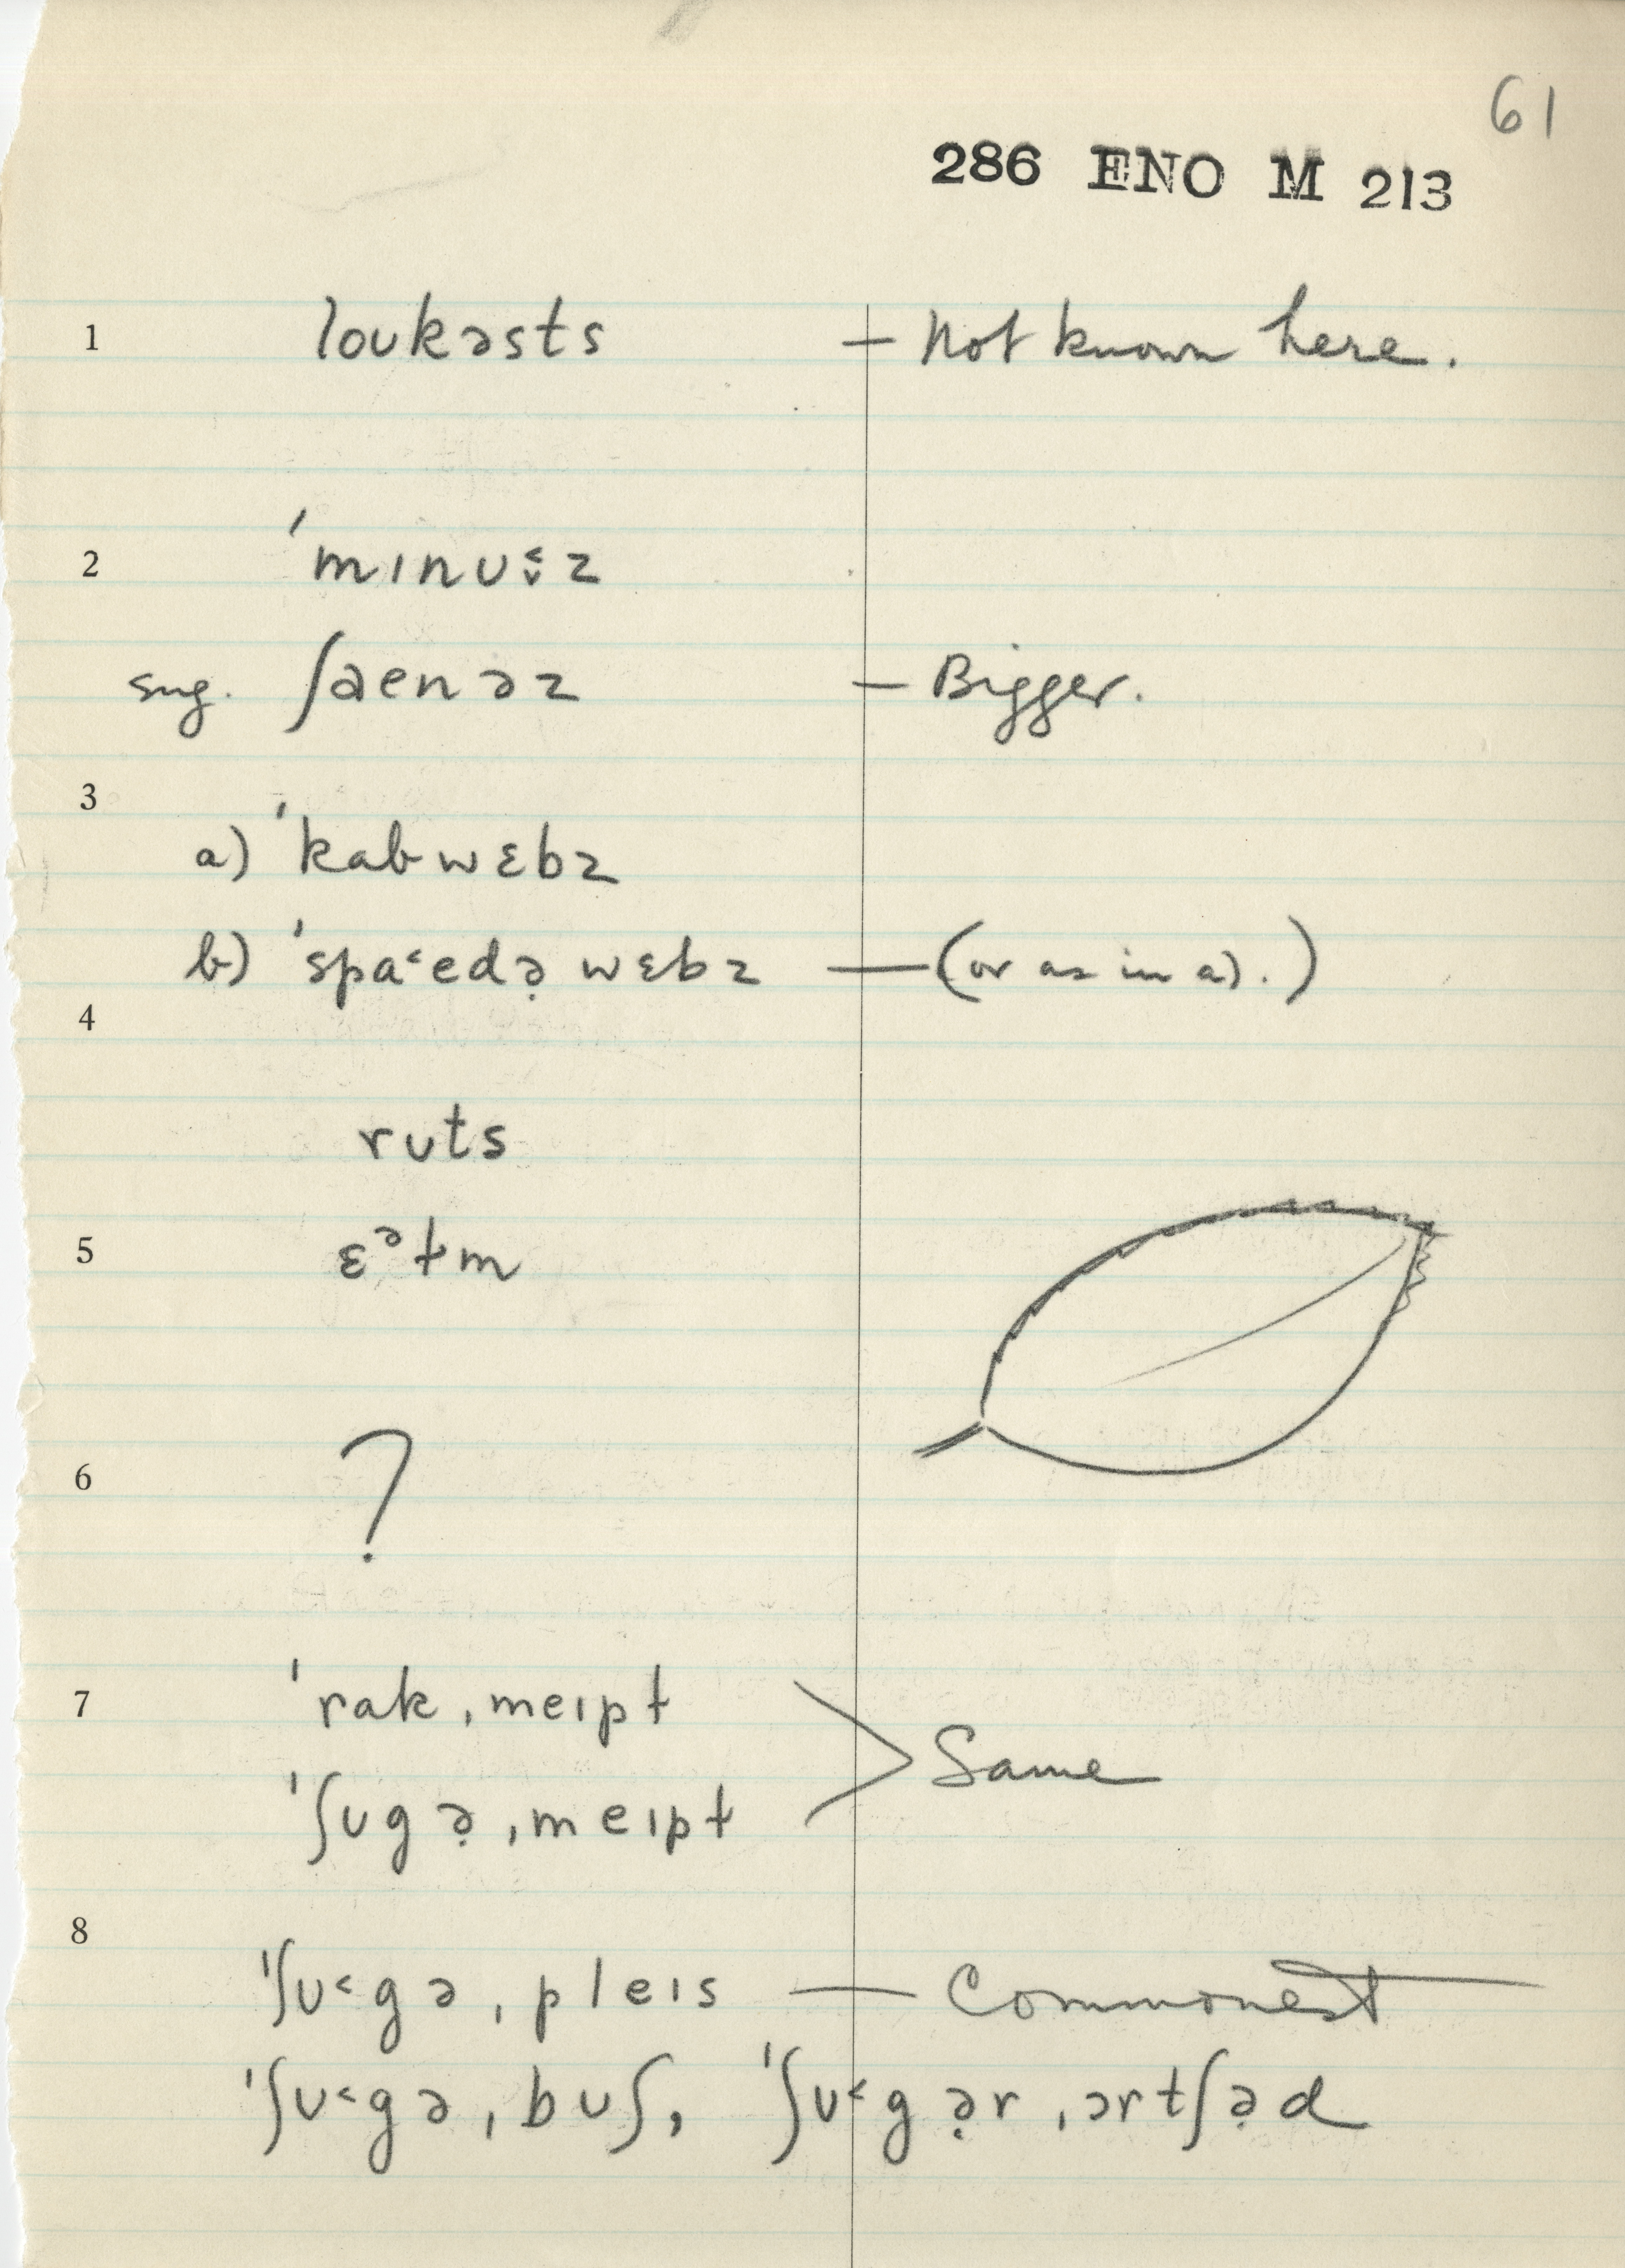 61
286 ENO M 213
1 loʊkəsts — Not known here.
2 ˈmɪnʊ˂˅z
sug. ʃaenəz — Bigger.
3
a) ˈkabwɛbz
b) ˈspa˂edə̣ wɛbz — (or as in a).)
4
ruts
5 ɛᵊɫm
6 ?
7 ˈrak ˌmeɪpɫ
ˈʃʊgə̣ ˌmeɪpɫ > Same
8
ˈʃʊ˂gə ˌpleɪs — Commonest
ˈʃʊ˂gə ˌbʊʃ, ˈʃʊ˂gə̣r ˌɔrtʃə̣d